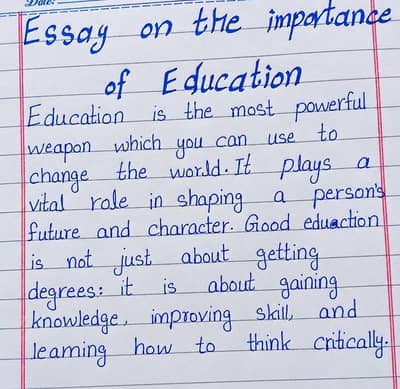 Date:
Essay on the importance
of Education
Education is the most powerful
weapon which you can use to
change the world. It plays a
vital role in shaping a person's
future and character. Good eduaction
is not just about getting
degrees: it is about gaining
knowledge, improving skill, and
learning how to think critically.